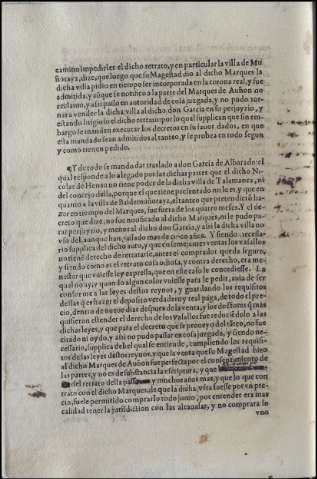 camino impedirles el dicho retrato, y en particular la villa de
raya, dize, que luego que su Magestad dio al dicho Marques la
dicha villa pidio en tiempo ser incorporada en la corona real, y fue
admitida, y aũque se notifico a la parte del Marques de Auñon no
reclamo, y assi passo en autoridad de cosa juzgada, y no pudo
vender la dicha villa al dicho don Garcia en su perjuyzio, y
por lo qual suplican que sin em-
bargo se manden executar los decretos en su fauor dados, en que
esta manda do sean admitidos al tanteo, y se prouea en todo segun
y como tienen pedido.
¶ Y de todo se manda dar traslado a don Garcia de Albarado: el
qual respondiendo alegado por las dichas partes que el dicho Ni-
colas de Henao no tiene poder de la dicha villa de Talamanca, ni
del concejo della, porque el que tiene presentado no lo es, y que en
quanto a la villa de Baldemoñaraya, el tanteo que pretende di
zer en tiempo del Marques, fue fuera de los quatro meses. Y el de-
creto que dize, no fue notificado al dicho Marques, ni le pudo pa-
rar perjuyzio, y menos al dicho don Garcia, y assi la dicha villa no
vso del, aunque han passado mas de ocho años. Y siendo necessa-
rio suplica del dicho auto, y que en semejantes ventas los vassallos
no tiene derecho de retratarse, antes el comprador queda seguro,
y siendo como es el retrato cosa odiosa, y contra derecho, era me-
nester que vuiesse ley expressa, que en este caso le concediesse. La
qual no ay, y quando algun color vuiesse para le pedir, auia de ser
conforme a las leyes destos reynos, y guardando los requisitos
dellas que es hazer el deposito verdadero y real paga, de todo el pre-
cio, dentro de nueue dias despues de la venta, y los decretos que mas
quisieron estender el derecho de los vassallos fue reduziendolo a las
dichas leyes, y que para el decreto que se proueyo del tãteo, no fue
citado ni oydo, y assi no pudo passar en cosa juzgada, y siendo ne-
cessario, suplica de hel qual se entiende, cumpliendo los requisi-
tos de las leyes destos reynos, y que la venta que su Magestad hizo
al dicho Marques de Auñon fue perfecta por el consentimiento de
las partes, y no es de substancia la escriptura, y que
del retrato della passaron y muchos años mas, y que lo que con-
trato con el dicho Marques, que de la dicha villa fuesse por en pre-
cio, fue le permitido comprarlo todo junto, por entender era mas
calidad tener la jurisdicion con las alcaualas, y no comprarla se
vno